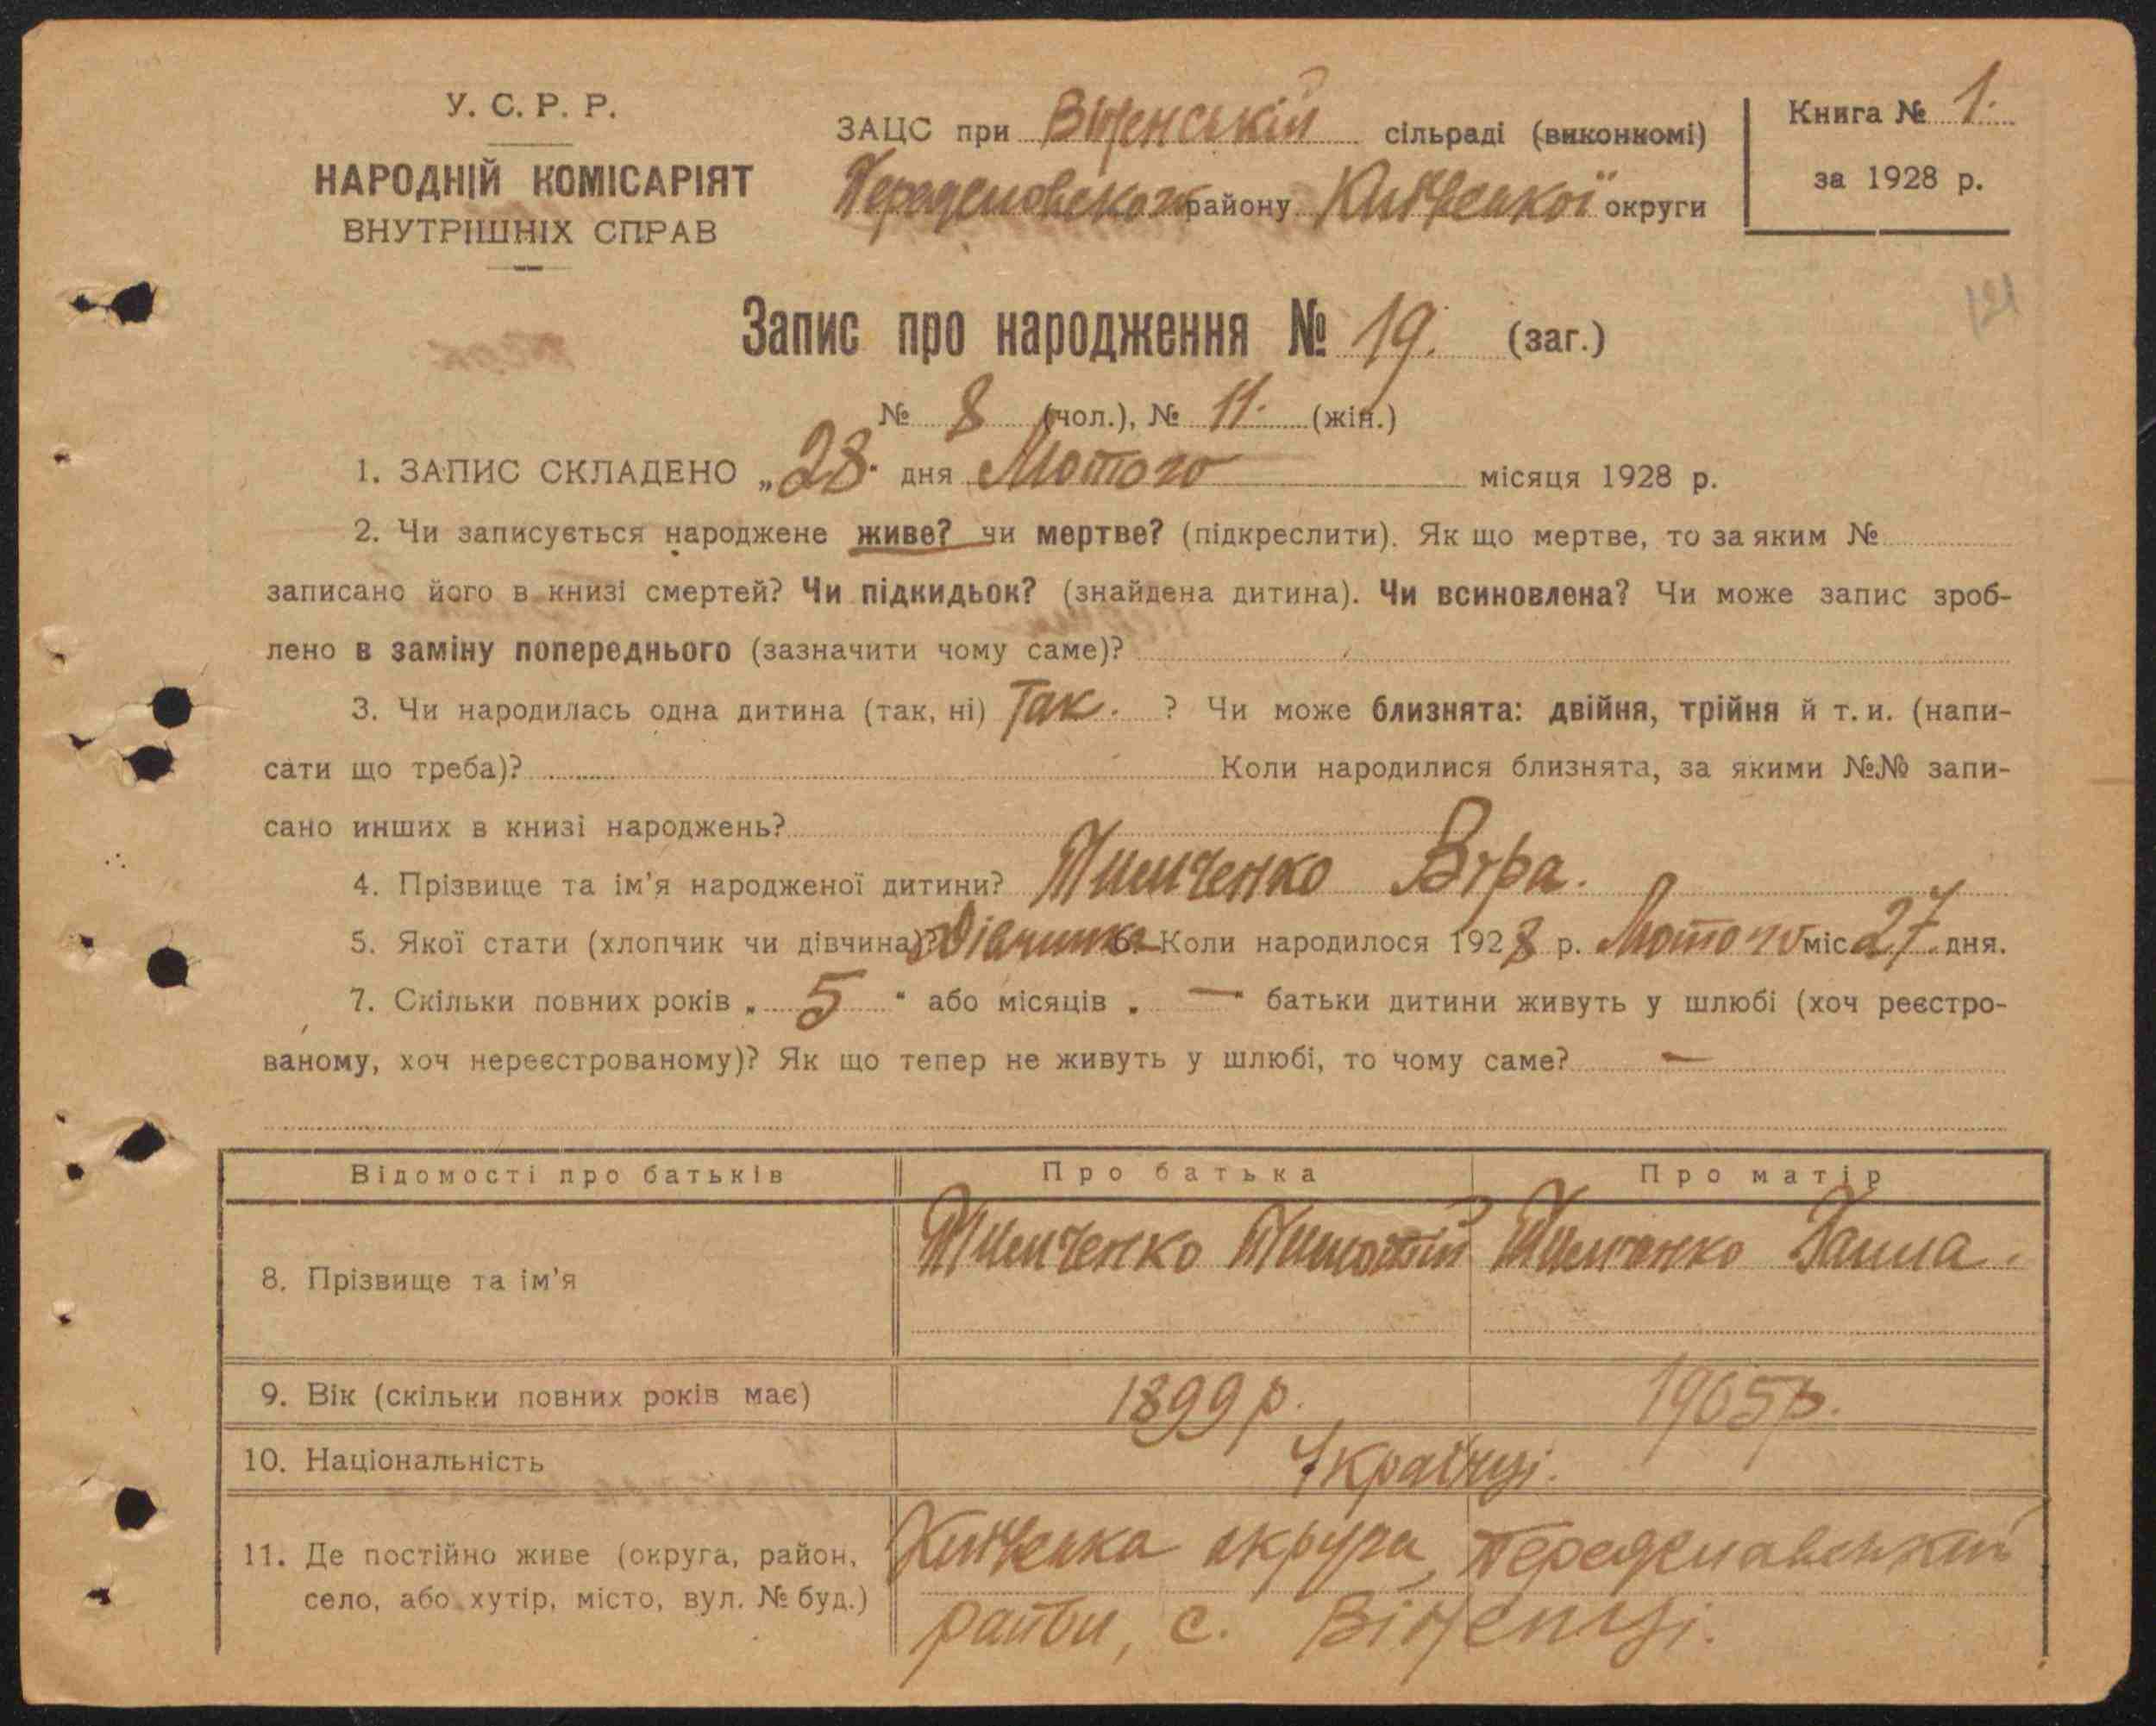 У. С. Р. Р.
НАРОДНІЙ КОМІСАРІЯТ
ВНУТРІШНІХ СПРАВ
ЗАЦС при Вʼюнській сільраді (виконкомі)
району Київської округи
Книга № 1.
за 1928 р.
121
Запис про народження № 19. (заг.)
№ 8 (чол.), № 11. (жін.)
1. ЗАПИС СКЛАДЕНО „28. дня Лютого місяця 1928 р.
2. Чи записується народжене живе? чи мертве? (підкреслити). Як що мертве, то за яким №
записано його в книзі смертей? Чи підкидьок? (знайдена дитина). Чи всиновлена? Чи може запис зроб-
лено в заміну попереднього (зазначити чому саме)?
3. Чи народилась одна дитина (так, ні) Так. ? Чи може близнята: двійня, трійня й т. и. (напи-
сати що треба)? Коли народилися близнята, за якими №№ запи-
сано инших в книзі народжень?
4. Прізвище та ім'я народженої дитини? Тимченко Віра.
5. Якої стати (хлопчик чи дівчина)? Дівчинка 6. Коли народилося 1928 р. Лютого міс. 27 дня.
7. Скільки повних років „ 5 " або місяців „ — " батьки дитини живуть у шлюбі (хоч реєстро-
ваному, хоч нереєстрованому)? Як що тепер не живуть у шлюбі, то чому саме? —
Відомості про батьків Про батька Про матір
8. Прізвище та ім'я Тимченко Тимофій Тимченко Ганна.
9. Вік (скільки повних років має) 1899 р. 1905 р.
10. Національність Українці.
11. Де постійно живе (округа, район, Київська округа, Переяславський
село, або хутір, місто, вул. № буд.) район, с.